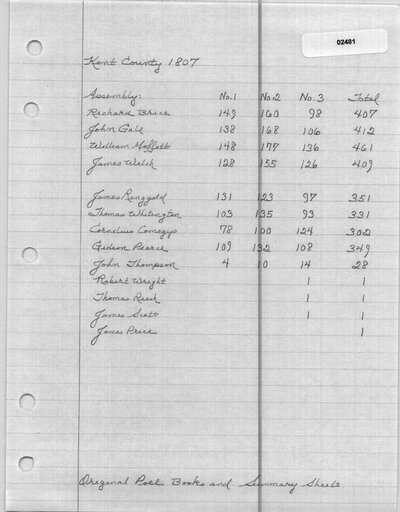 02481
Kent County 1807
Assembly: No. 1 No 2 No. 3 Total
Richard Brice 149 160 98 407
John Gale 138 168 106 412
William Moffett 148 177 136 461
James Welch 128 155 126 409
James Ringgold 131 123 97 351
Thomas Whitington 103 135 93 331
Cornelius Comegys 78 100 124 302
Gideon Pearce 109 132 108 349
John Thompson 4 10 14 28
Robert Wright 1 1
Thomas 1 1
James Scott 1 1
James Price 1
Original Poll Books and Summary Sheets